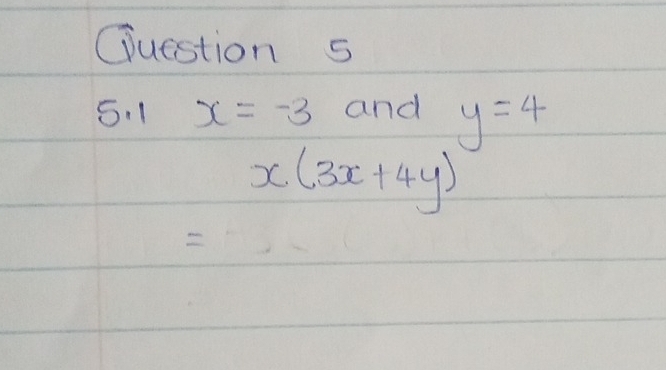 Question 5
5.1 x = -3 and y = 4
x(3x + 4y)
=